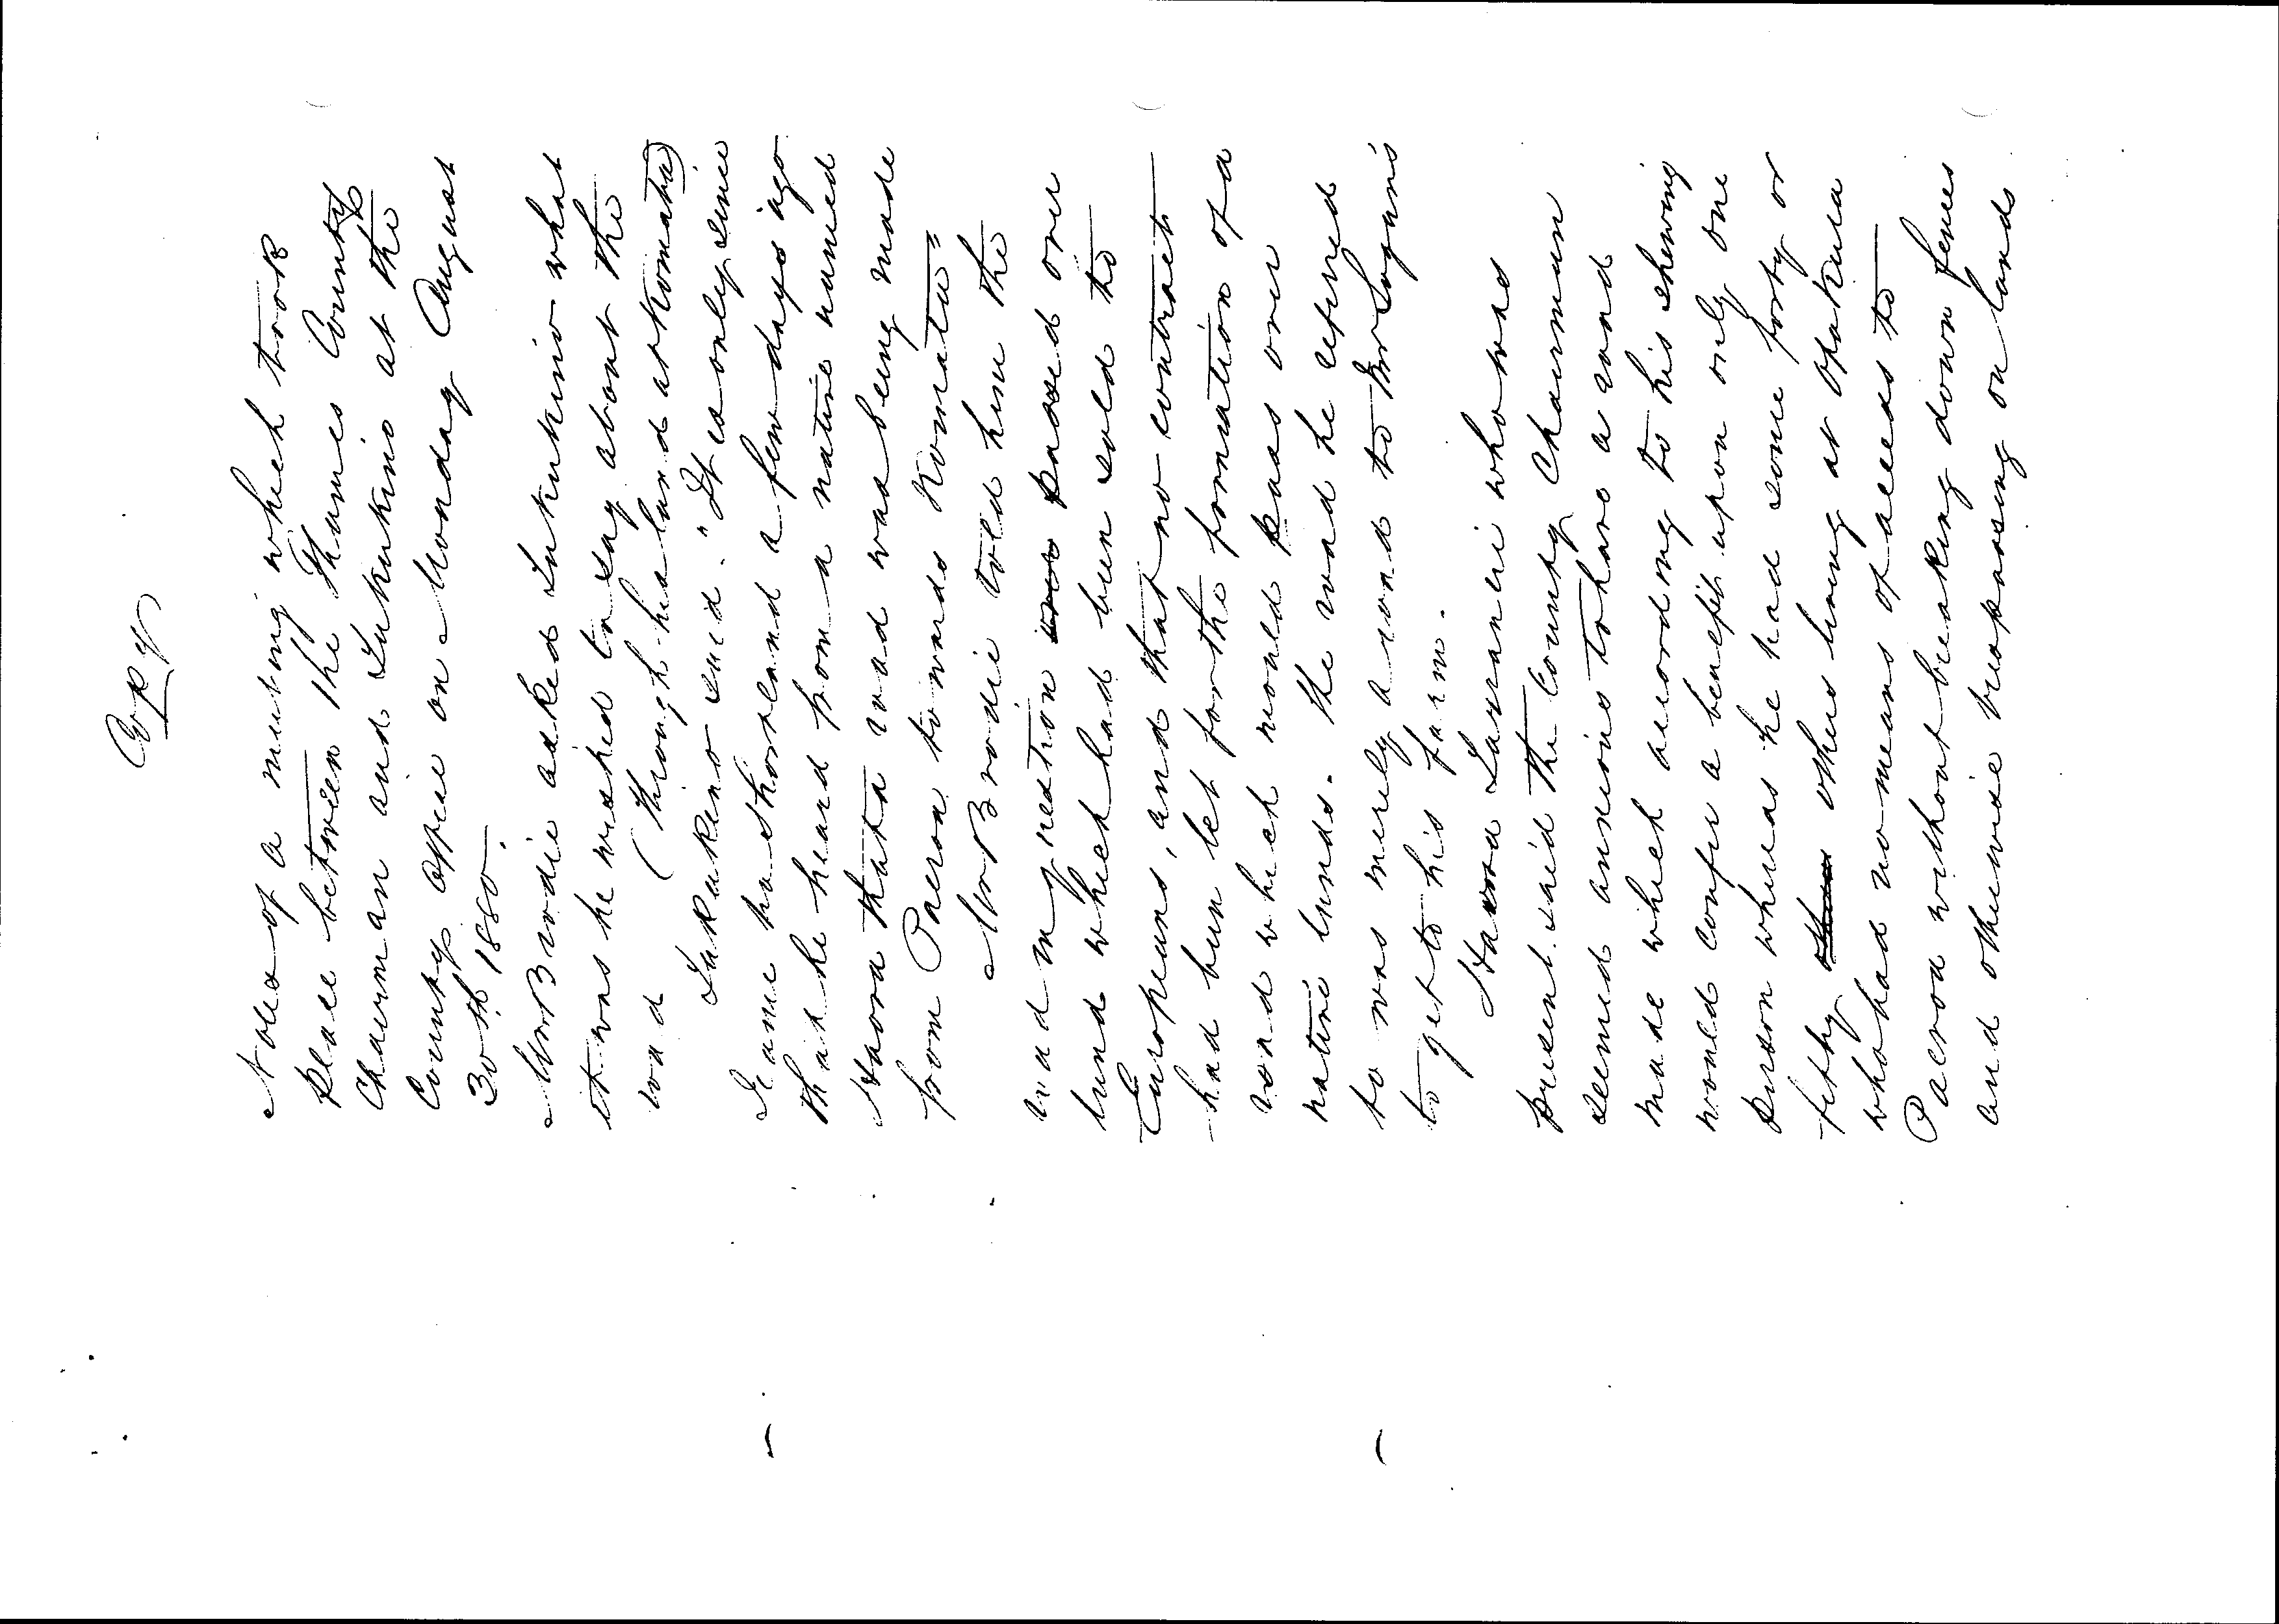 Copy
Notes of a meeting which took
place between the Thames County
Chairman and Tukukino at the
County Office on Monday August
30th 1880.
Mr Brodie asked Tukukino what
it was he wished to say about the
road (through his land at Komata)
Tukukino said. "It is only since
I came to Shortland a few days ago
that he heard from a native named
Haora that a road was being made
from Paeroa towards Komata"
Mr Brodie told him the
road in question passed over
land which had been sold to
Europeans, and that no contract
had been let for the formation of a
road which would pass over
native lands. The road he referred
to was merely a road to McGregor's
to get to his farm.
Haora Tareranui who was
present said the County Chairman
seemed anxious to have a road
made which according to his shewing
would confer a benefit upon only one
person whereas he had some forty or
fifty others living at Opukura
who had no means of access to
Paeroa without breaking down fences
and otherwise trespassing on lands